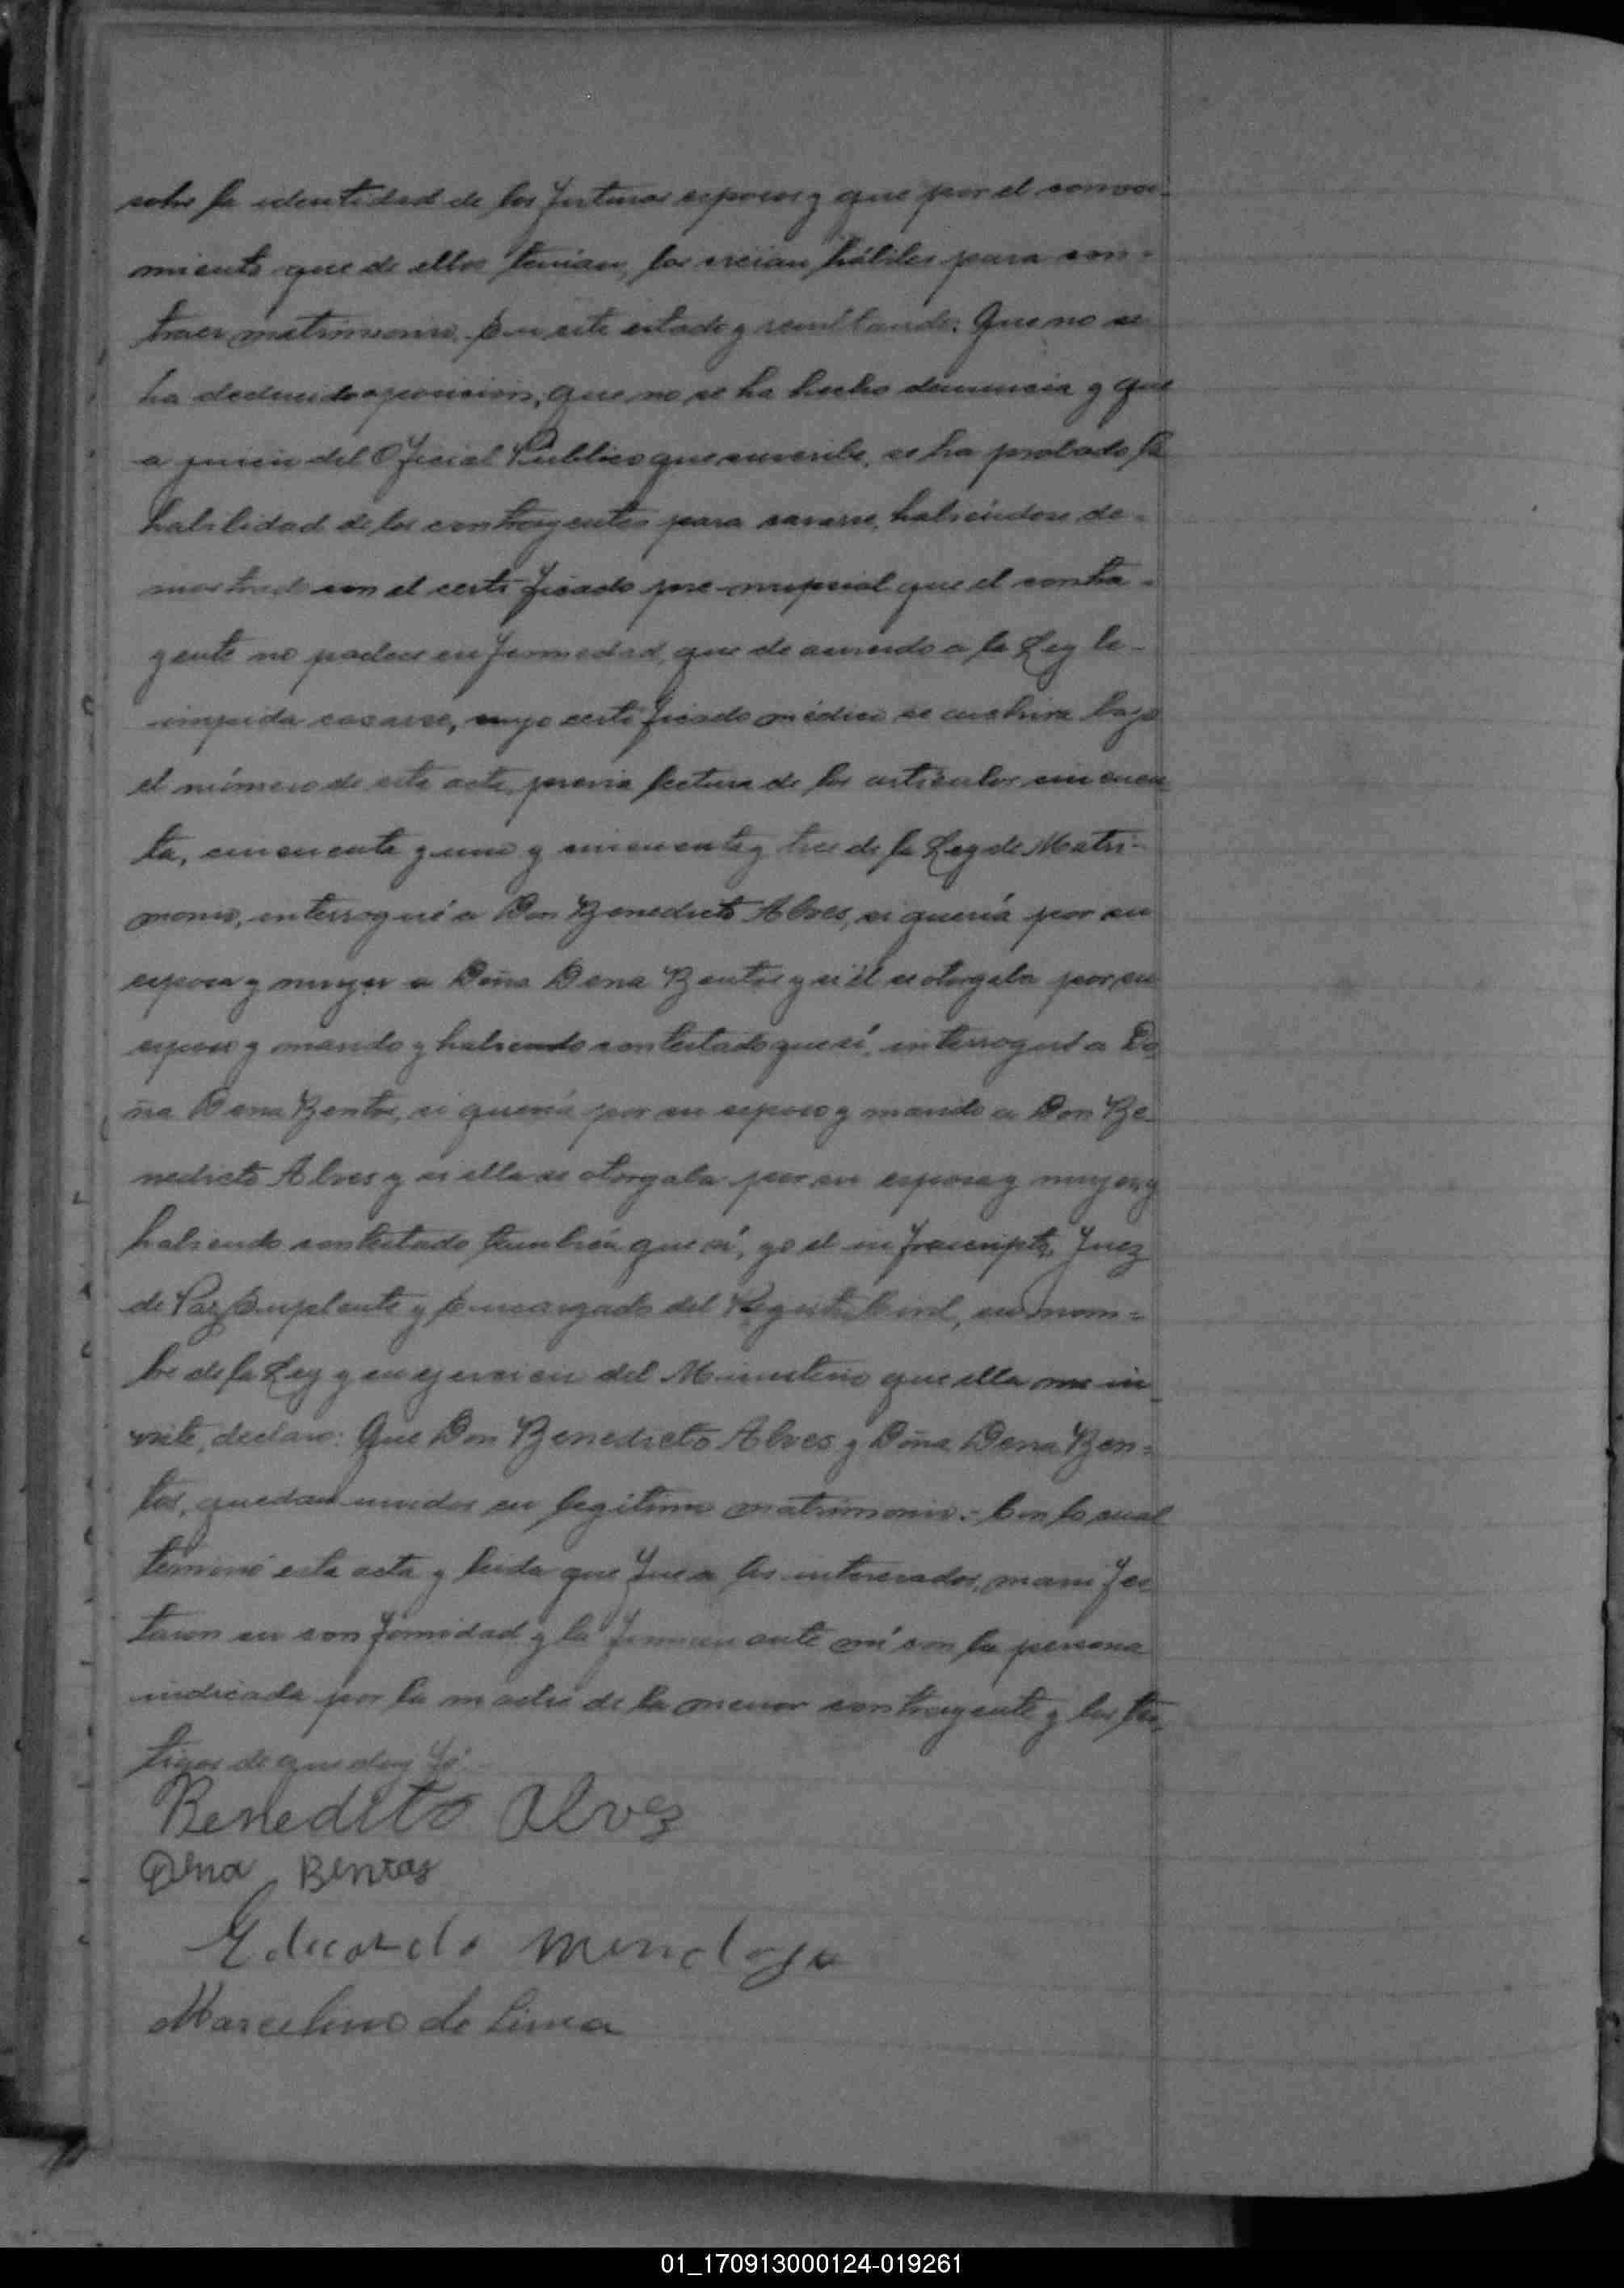 sobre la identidad de los futuros esposos y que por el conoci-
miento que de ellos tenían, los creían hábiles para con-
traer matrimonio. En este estado y resultando: Que no se
ha deducido oposicion, que no se ha hecho denuncia y que
a juicio del Oficial Público que suscribe, se ha probado la
habilidad de los contrayentes para casarse, habiéndose de-
mostrado con el certificado pre-nupcial que el contra-
yente no padece enfermedad, que de acuerdo a la Ley le
impida casarse, cuyo certificado médico se archiva bajo
el número de esta acta, previa lectura de los artículos cincuen
ta, cincuenta y uno y cincuenta y tres de la Ley de Matri-
monio, interrogué a Don Benedicto Alves, si quería por su
esposa y mujer a Doña Dena Bentos y si él se otorgaba por su
esposo y marido y habiendo contestado que sí, interrogué a Do
ña Dena Bentos, si quería por su esposo y marido a Don Be-
nedicto Alves y si ella se otorgaba por su esposa y mujer, y
habiendo contestado también que sí, yo el infrascripto, Juez
de Paz Suplente y Encargado del Registro Civil, en nom-
bre de la Ley y en ejercicio del Ministerio que ella me in
viste, declaro: Que Don Benedicto Alves y Doña Dena Ben-
tos, quedan unidos en legítimo matrimonio.- Con lo cual
terminé esta acta y leida que fue a los interesados, manifes
taron su conformidad y la firman ante mí con la persona
indicada por la madre de la menor contrayente y los tes-
tigos de que doy fé.-
Benedito Alves
Dena Bentos
Eduardo Mendoza
Marcelino de Lima
01_170913000124-019261